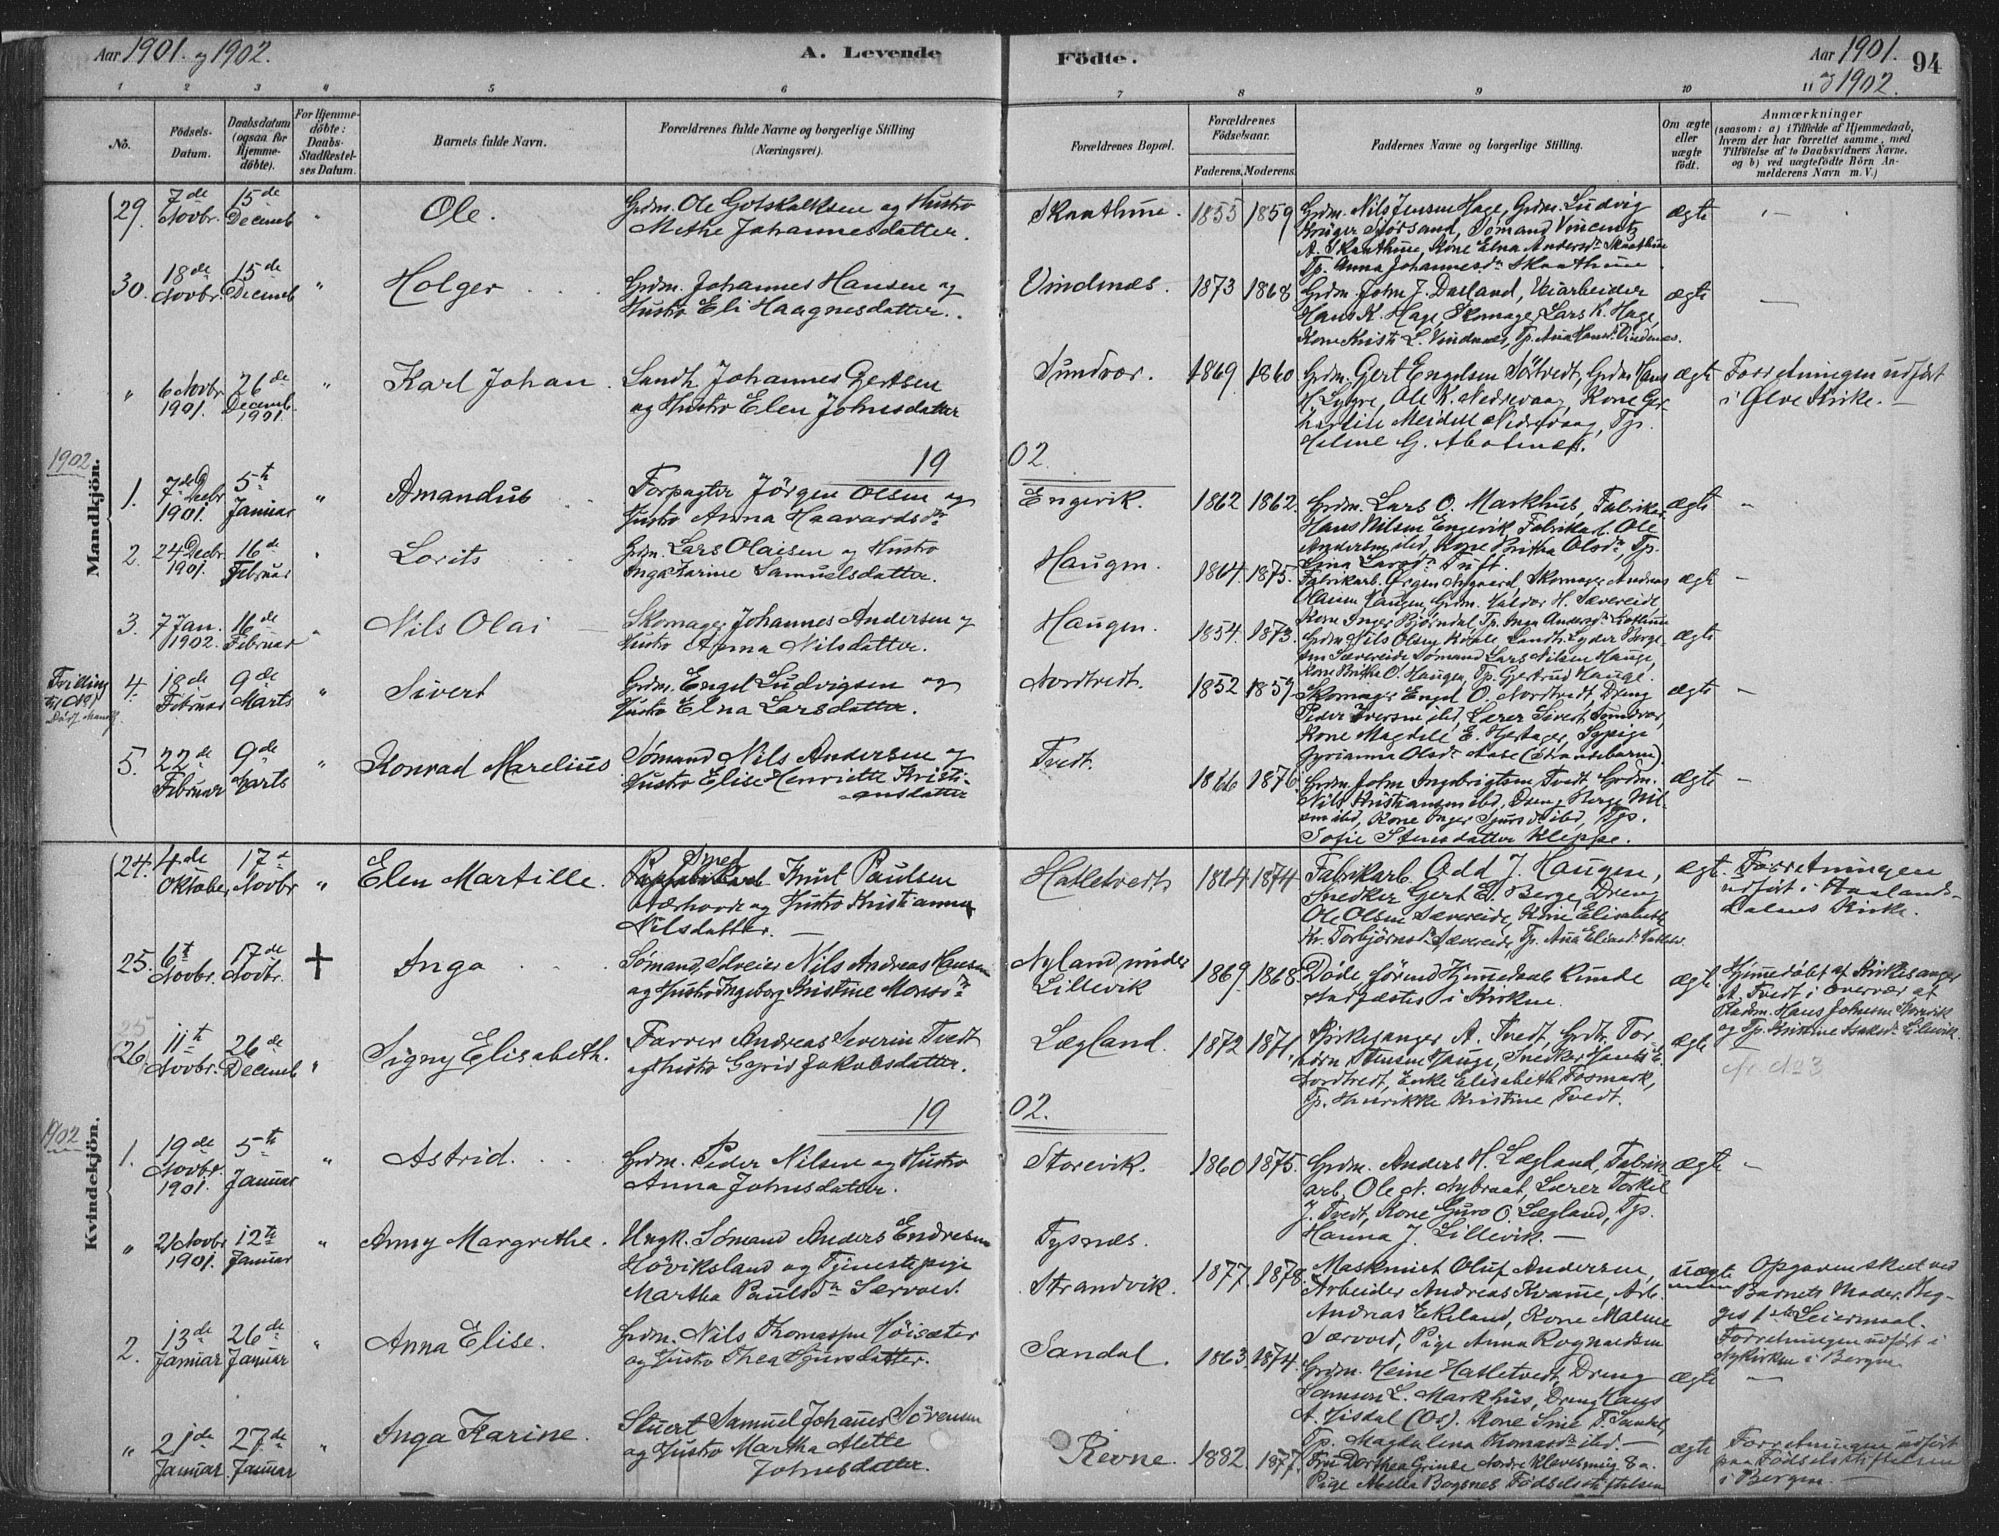 Aar 1901. og 1902.
A. Levende
Födte.
Aar 1901.
" og 1902.
94
1 2 3 4 5 6 7 8 9 10 11
No.
Födsels-Datum.
Daabsdatum (ogsaa for Hjemmedöbte).
For Hjemmedöbte: Daabs-Stadfæstelses Datum.
Barnets fulde Navn.
Forældrenes fulde Navne og borgerlige Stilling (Næringsvei).
Forældrenes Bopæl.
Forældrenes Födselsaar.
Faderens. Moderens.
Faddernes Navne og borgerlige Stilling.
Om ægte eller uægte födt.
Anmærkninger
(saasom: a) i Tilfælde af Hjemmedaab, hvem der har forrettet samme, med Tilföielse af to Daabsvidners Navne, og b) ved uægtefödte Börn Anmelderens Navn m. V.)
Mandkjön.
29. 7de Novbr. 15de Decemb " Ole. Grdm. Ole Gotskalksen og Hustro
Methe Johannesdatter.
Skaathune. 1855 1859 Grdm. Nils Jensen Hage, Grdm. Ludvig
Krüger Sjörsand, Sömand Vincents
A. Skaathune, Kone Elna Andersdr Skaathun
Tp. Anna Johannesdr Skaathune
ægte " —
30. 18de Novbr. 15de Decemb " Holger Grdm. Johannes Hansen og
Hustro Eli Haagnesdatter.
Vindenæs. 1873 1868 Grdm. John J. Dalland, Veiarbeider
Hans K. Hage, Skomager Lars K. Hage,
Kone Kristi L. Vindenæs, Tp. Ana Hansdr Vindenes.
ægte —
" 6 Novbr 1901. 26de Decemb 1901. " Karl Johan. Landh. Johannes Gertsen
og Hustro Elen Johnsdatter
Sundvor. 1869 1860 Grdm. Gert Engelsen Sörtvedt, Grdm. Hans
H. Lygre, Ole K. Nedrevaag, Kone Ger-
Meidell Nedrevaag, Tp.
Malene G.
ægte Forretningen udfört
i Ølve Kirke. —
1902
1902.
1. 7de Decbr 1901. 5th Januar " Amandus Forpagter Jörgen Olsen og
Hustro Anna Haavardsdr
Engevik. 1862 1862. Grdm. Lars O. Markhus, Fabrikar.
Hans Nilsen Engevik, Fabrikarb. Ole
Andersen ibd, Kone Britha Olsdr Tp.
Lina Larsdr Tuft.
ægte "
2. 24 Decbr. 1901. 16de Februar " Lorits Grdm. Lars Olaisen og Hustro
Inga Karine Samuelsdatter.
Haugen. 1864. 1875. Fabrikarb. Ørgen Nygaard, Skomager Andreas
Olaisen Haugen, Grdm. Haldor H. Sævereide,
Kone Inger Björndal, Tp. Inga Andersdr
ægte —
3. 7 Jan. 1902. 16de Februar " Nils Olai Skomager Johannes Andersen og
Hustro Anna Nilsdatter.
Haugen. 1854. 1873. Grdm. Nils Olsen Landh. Lyder Berge
Sævereide Sömand Lars Nilsen Hauge,
Kone Britha O. Haugen, Tp. Gertrud Hauge.
ægte —
Tvilling
4. 18de Februar 9de Marts " Sivert Grdm. Engel Ludvigsen og
Hustro Elna Larsdatter.
Nordtvedt. 1852 1859 Skomager Engel O. Nordtvedt, Dreng
Peder Iversen ibd, Lærer Sivert Sundvor,
Kone Magdeli E. Hertager, Sypige
Gyrianna Olsdr Aase (Strandebarm)
ægte —
5. 22de Februar 9de Marts " Konrad Marelius Sömand Nils Andersen og
Hustro Elise Henriette Kristi-
ansdatter
Tvedt. 1866 1876. Grdm. John Ingebrigtsen Tvedt, Grdm.
Nils Kristiansen ibd, Dreng Berge Nil-
sen ibd, Kone Inger Sjursdr ibd, Tp.
Sofie Stensdatter Kleppe.
ægte —
Kvindekjön.
24. 4de Oktober 17de Novbr " Elen Martille. Smed
Knut Paulsen
og Hustro Kristianna
Nilsdatter. —
Hatletvedt 1864 1874 Fabrikarb. Odd J. Haugen,
Snedker Gert E. Berge, Dreng
Ole Olsen Sævereide, Kone Elisabeth
Kr. Torbjörnsdr Sævereide, Tp. Ana
ægt. Forretningen
udfört i Haalands-
dalens Kirke.
25. 6t Novbr. 17de Novbr. + Inga Sömand, Selveier Nils Andreas Hansen
og Hustro Ingeborg Kristine Monsdr
Nyland under
Lillevik 1869. 1868. Döde förend Hjemmedaab kunde
stadfæstes i Kirken.
ægte Hjemmedöbt af Kirkesanger
A. Tvedt i Overvær af
Pladsm. Hans Johnsen Storevik
og Tp. Kristine Isaksdr Lillevik
25
26. 11th Novbr. 26de Decemb " Signy Elisabeth. Farver Andreas Severin Tvedt
og Hustro Gyrid Jakobsdatter.
Lægland. 1872 1871. Kirkesanger A. Tvedt, Grdbr. Tor-
björn Stensen Hauge, Snedker Hans E.
Nordtvedt, Enke Elisabeth Fosmark,
Tp. Henrikke Kristine Tvedt.
ægte
cfr No 3
1902
1902.
1. 19de Novbr. 1901. 5th Januar " Astrid. Grdm. Peder Nilsen og Hustro
Anna Johnsdatter.
Storevik. 1860 1875. Grdm. Anders H. Lægland, Fabrik
arb. Ole N. Nybraat, Lærer Torkel
J. Tvedt, Kone Guro O. Lægland, Tp.
Hanna J. Lillevik. —
ægte "
" 21 Novbr 1901. 12th Januar " Anny Margrethe. Ungk. Sömand Anders Endresen
Höviksland og Tjenestepige
Martha Paulsdr Særvold.
Tysnæs.
Strandvik. 1877. 1878. Maskinist Oluf Andersen,
Arbeider Andreas Kvame, Arb.
Andreas Ekeland, Kone Malene
Særvold, Pige Anna Rognaldsen
uægte Opgaven skeet ved
Barnets Moder. Beg-
ges 1ste Leiermaal.
Forretningen udfört i
Nykirken i Bergen.
2. 13de Januar 26de Januar " Anna Elise. Grdm. Nils Thomassen Höisæter
og Hustro Thea Sjursdatter.
Sandal. 1863. 1874. Grdm. Heine Hatletvedt, Dreng
Samson L. Markhus, Dreng Hans
A. Lisdal (Os). Kone Sine T. Sandal,
Tp. Magdalena Thomasdr ibd. —
ægte —
" 21de Januar 27de Januar " Inga Karine. Stuert Samuel Johannes Sörensen
og Hustro Martha Alette
Johnsdatter.
Revne. 1882 1877. Fru Dorthea Grinde
Pige Födselsstiftelsen
ægte Forretningen udfört
paa Födselsstiftelsen
i Bergen. —